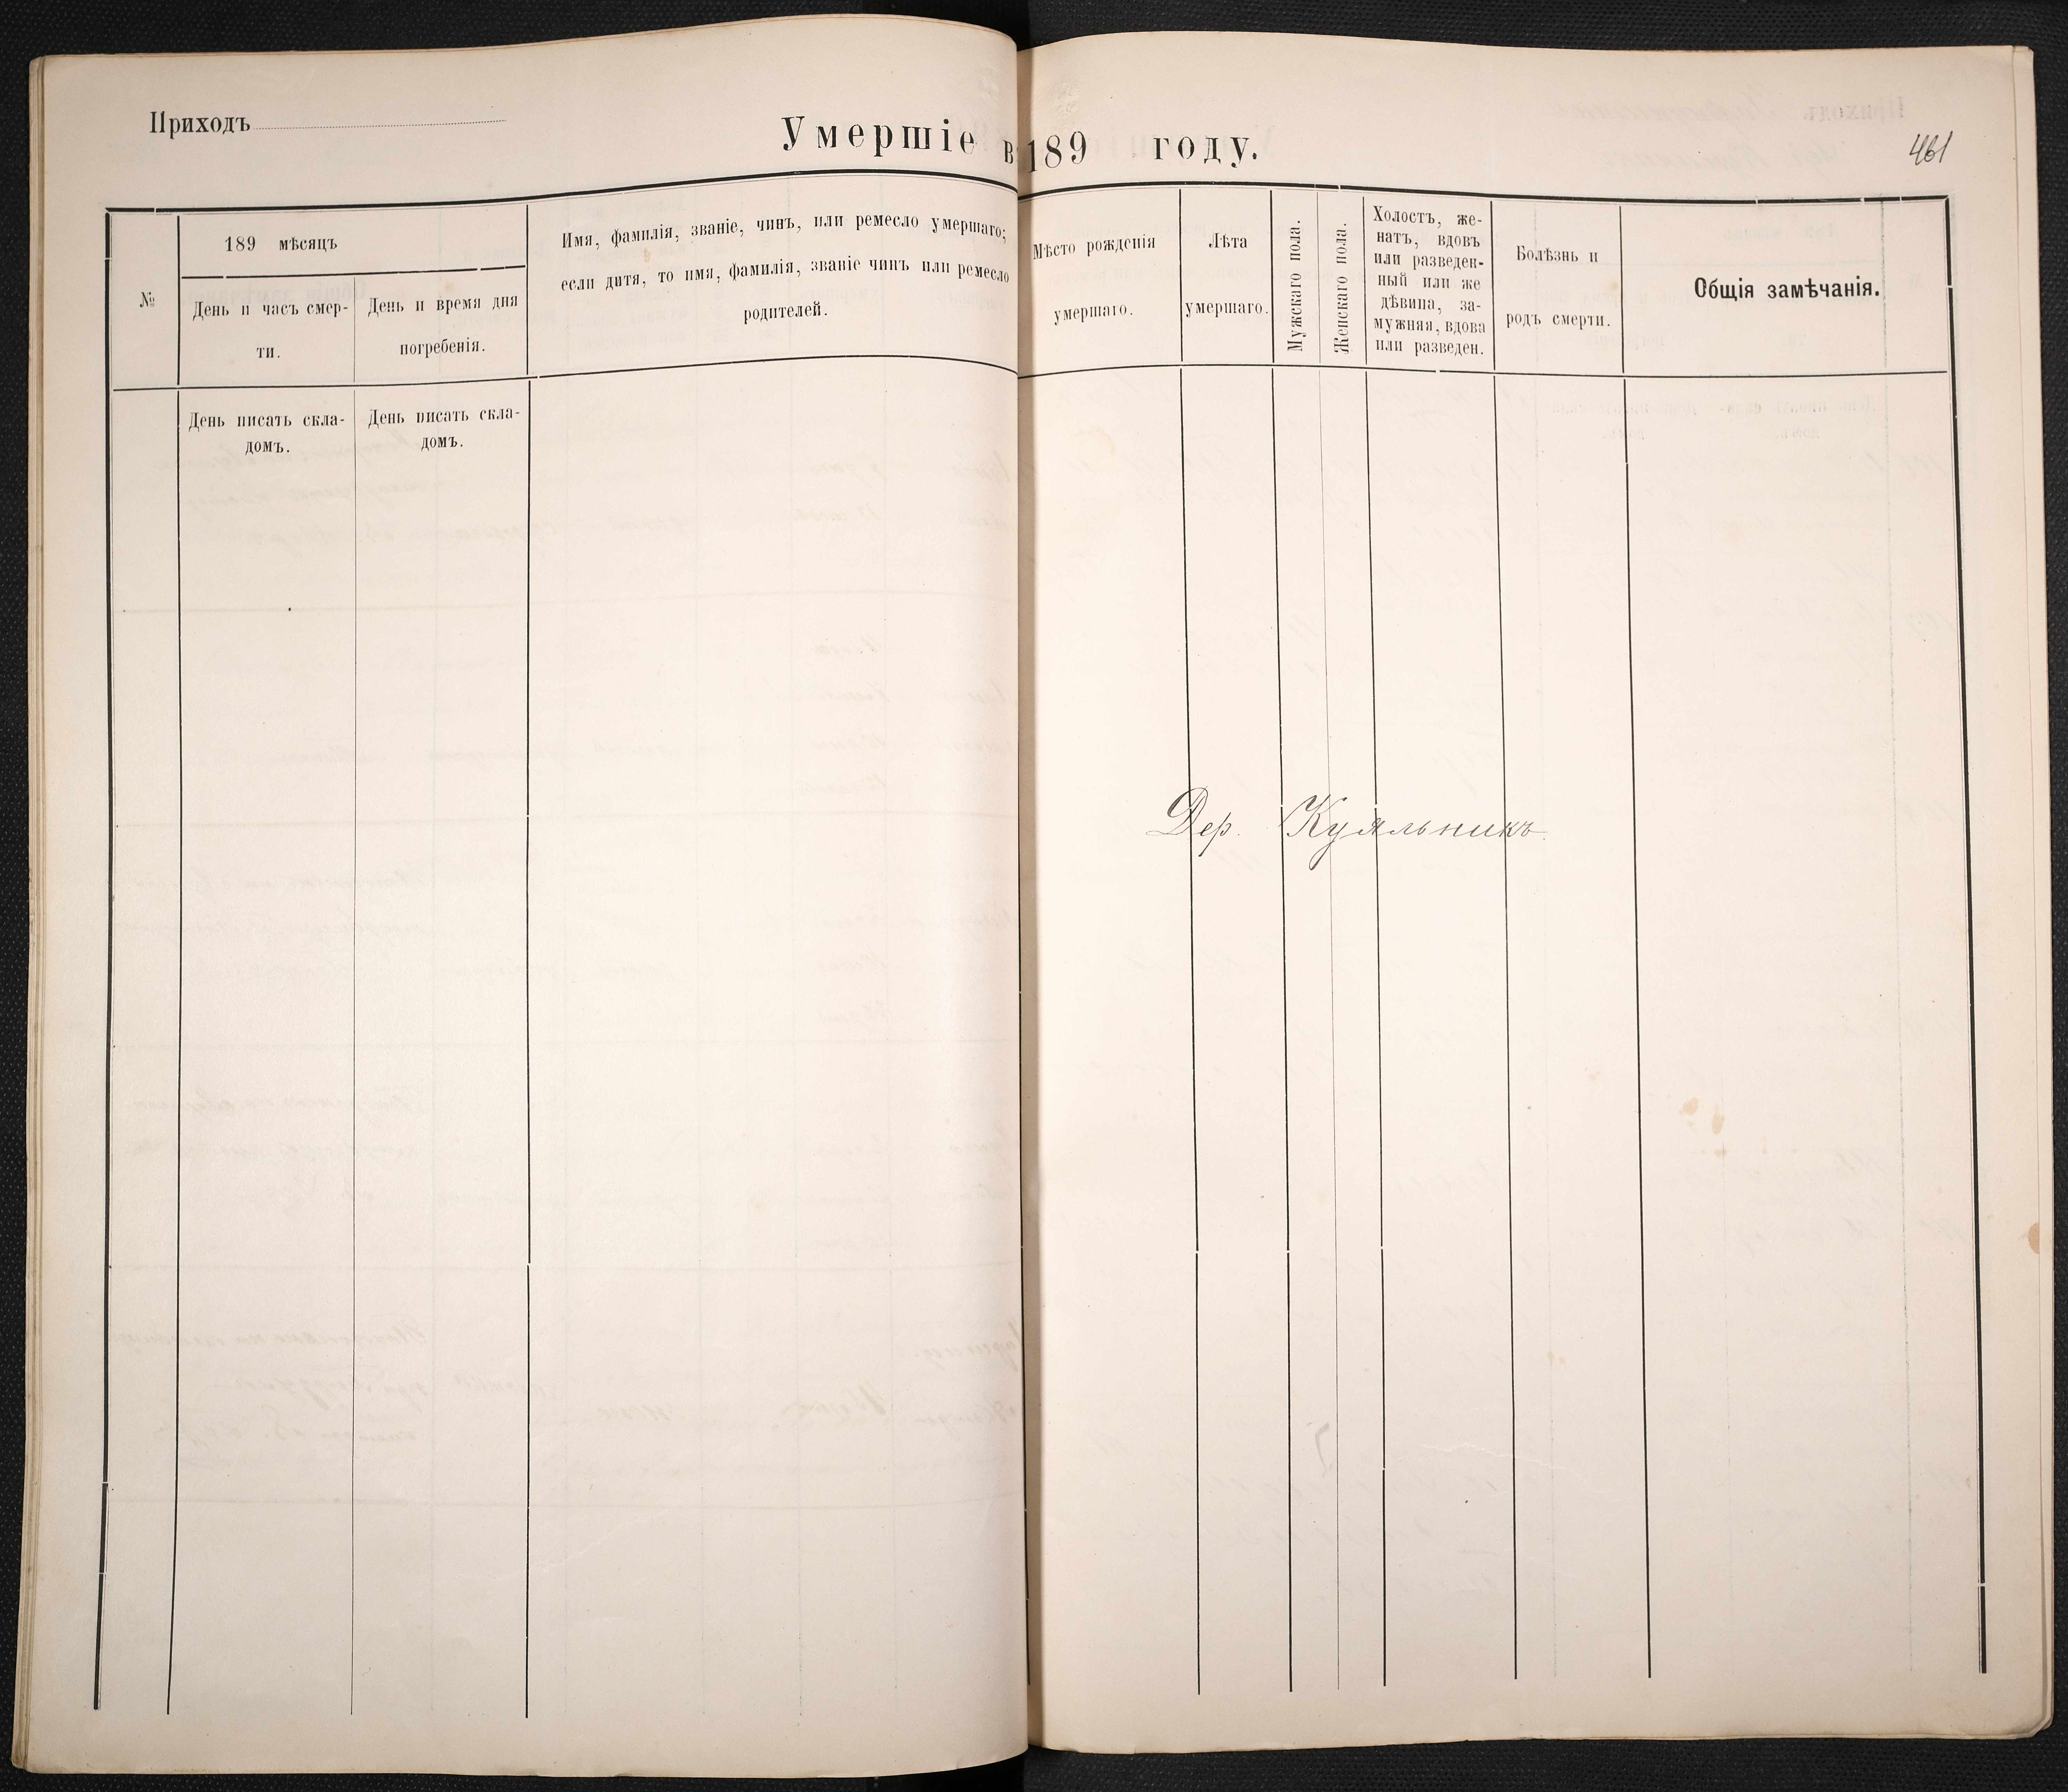 Приходъ
Умершіе въ 189 году.
461
№
189 мѣсяцъ
День и часъ смер-
ти.
День и время дня
погребенія.
Имя, фамилія, званіе, чинъ, или ремесло умершаго;
если дитя, то имя, фамилія, званіе чинъ или ремесло
родителей.
Мѣсто рожденія
умершаго.
Лѣта
умершаго.
Мужскаго пола.
Женскаго пола.
Холостъ, же-
натъ, вдовъ
или разведен-
ный или же
дѣвица, за-
мужняя, вдова
или разведен.
Болѣзнь и
родъ смерти.
Общія замѣчанія.
День писать скла-
домъ.
День писать скла-
домъ.
Дер. Куяльникъ.